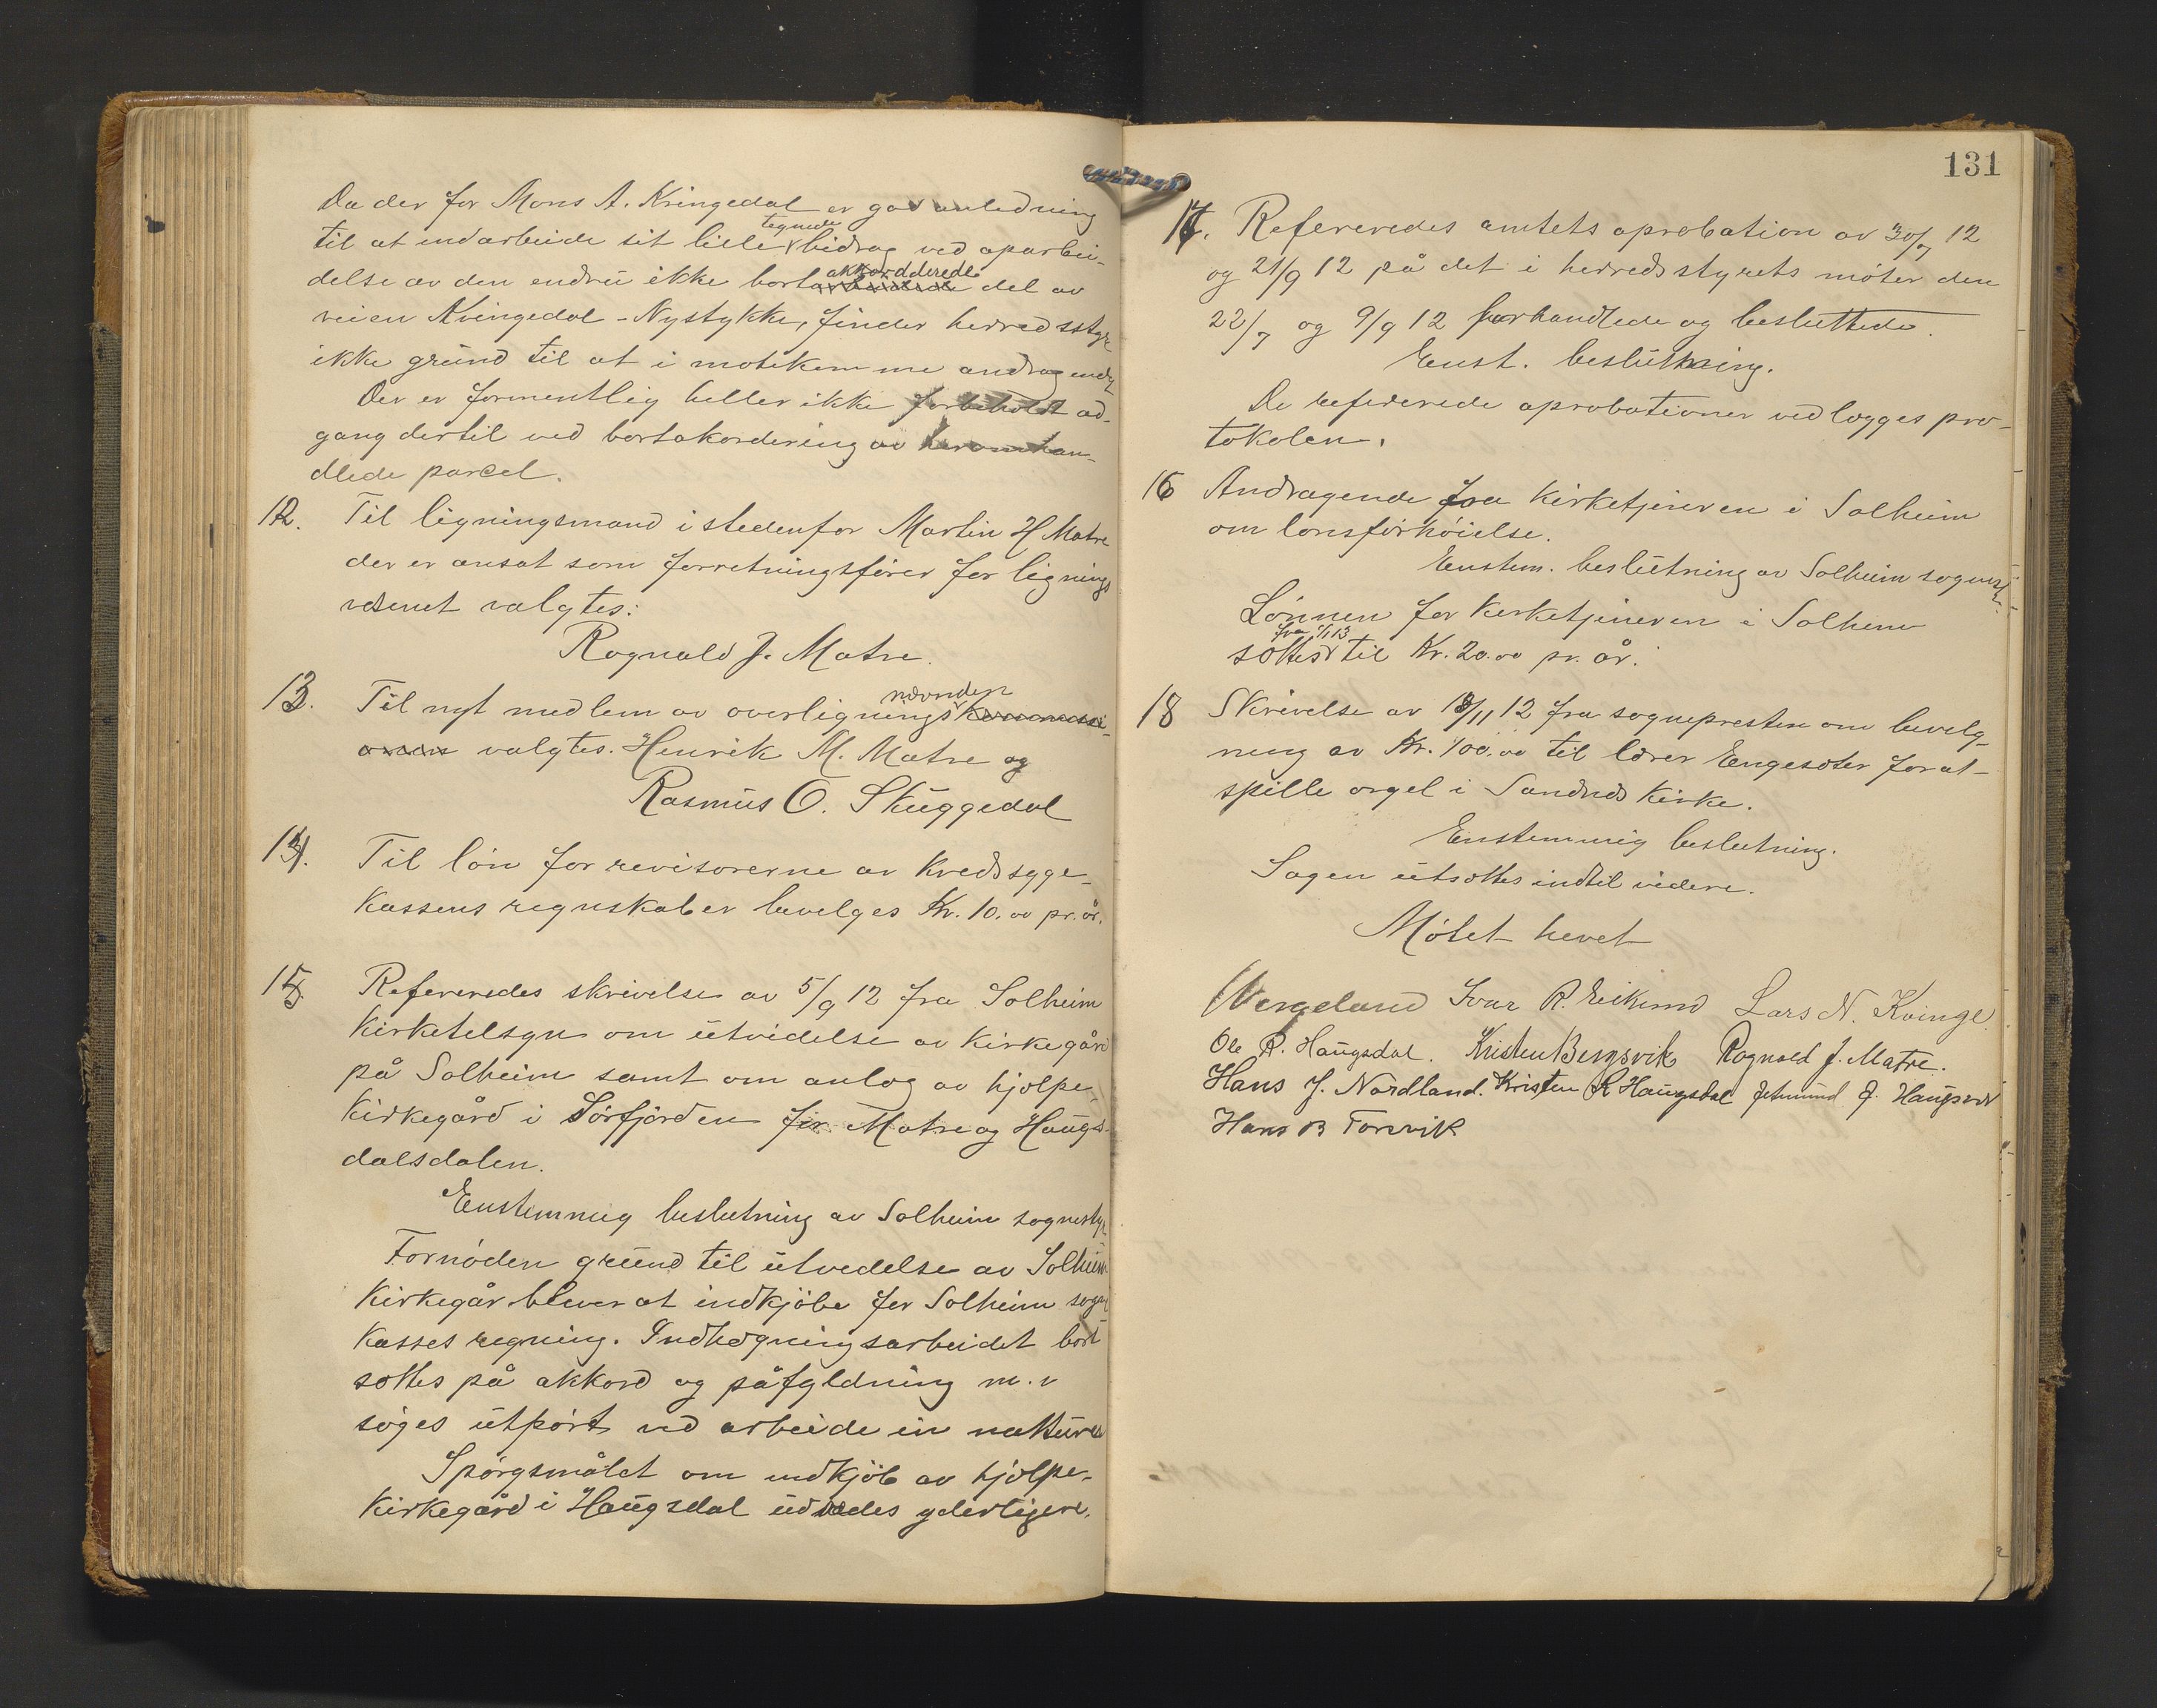 Da der for Mons A. Kringedal er god anledning
til at indarbeide sit lille tegnede bidrag ved oparbei-
delse av den endnu ikke bortakkordderede del av
veien Kvingedal - Nystykke, finder herredsstyr
ikke grund til at i møtekomme andragendet
Der er formentlig heller ikke forbeholdt ad-
gang dertil ved bortakordering av heromhan-
dlede parcel.
12. Til ligningsmand istedenfor Martin H Matre
der er ansat som forretningsfører for lignings
væsenet valgtes:
Ragnald J. Matre.
13. Til nyt medlem av overligningsnævnden kommissi-
onen valgtes. Henrik M. Matre og
Rasmus O. Skuggedal
14. Til løn for revisorerne av Kredssyge-
kassens regnskaber bevelges Kr. 10.00 pr. år.
15. Refereredes skrivelse av 5/9 12 fra Solheim
Kirketelsyn om utvidelse av Kirkegård
på Solheim samt om anlæg av hjælpe-
Kirkegård i Sørfjorden for Matre og Haugs-
dalsdalen.
Enstemmig beslutning av Solheim sognestyr
Fornøden grund til utvedelse av Solheim
Kirkegår blever at indkjøbe for Solheim sogn
Kasses regning. Indhegningsarbeidet bort
sættes på akkord og påfyldning m. v
søges utført ved arbeide in nattura
Spørgsmålet om indkjøb av hjælpe-
Kirkegård i Haugsdal udredes yderligere.
131
17. Refereredes amtets aprobation av 30/7 12
og 21/9 12 på det i herredsstyrets møter den
22/7 og 9/9 12 forhandlede og besluttede.
Enst. beslutning.
De refererede aprobationer vedlægges pro-
tokolen.
16 Andragende fra Kirketjeneren i Solheim
om lønsforhøielse.
Enstem. beslutning av Solheim sognest.
Lønnen for Kirketjeneren i Solheim
sættes fra 1/1 13 til Kr. 20.00 pr. år.
18 Skrivelse av 18/11 12 fra sognepresten om bevelg-
ning av Kr. 100.00 til lærer Engesæter for at
spille orgel i Sandnæs Kirke.
Enstemmig beslutning.
Sagen utsættes indtil videre.
Møtet hevet
Wergeland Ivar R. Eikemo Lars N. Kvinge.
Ole R. Haugsdal. Kristen Bergsvik Ragnald J. Matre.
Hans J. Nordland. Kristen R Haugsdal Jetmund J. Haugsvær
Hans B Torsvik